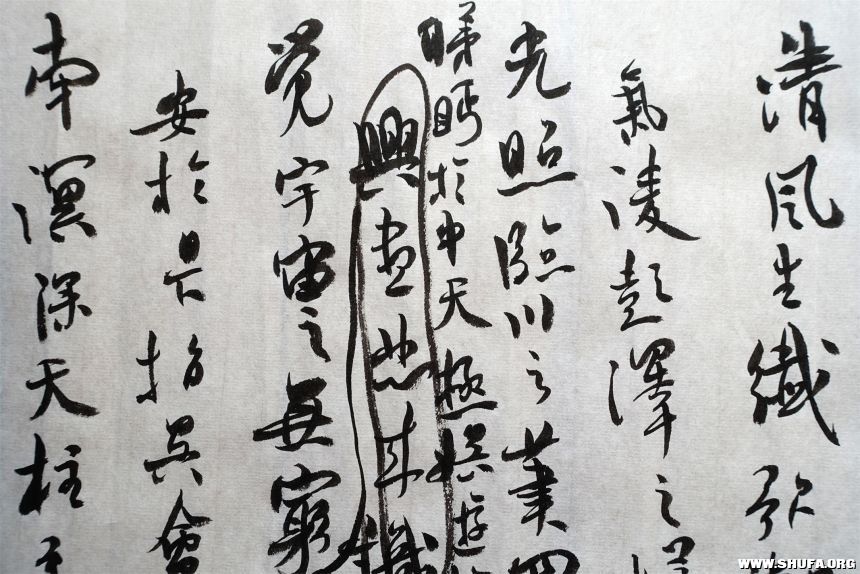 清風生纖歌
氣淩彭澤之
光照臨川之筆四
睇眄於中天極娛遊
興盡悲來識
覺宇宙之無窮
安於日下指吳會
南溟深天柱
WWW.SHUFA.ORG